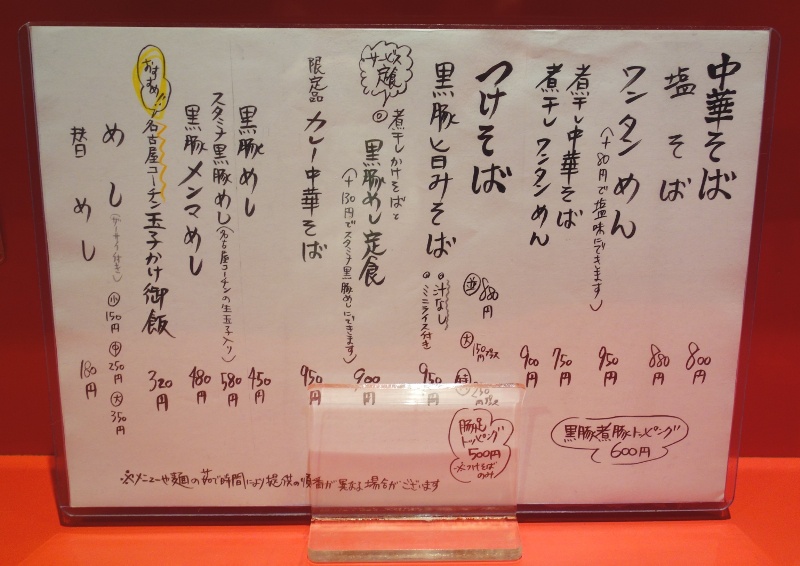 中華そば 800円
塩そば 880円
ワンタンめん 950円
(+80円で塩味にできます)
煮干し中華そば 750円
煮干しワンタンめん 900円
つけそば
並 880円
大 150円プラス
特 250円
黒豚旨みそば 950円
◎汁なし
◎ミニライス付き
サービス
定食
◎煮干しかけそばと
黒豚めし定食 900円
(+130円でスタミナ黒豚めしにできます)
限定品 カレー中華そば 950円
黒豚めし 450円
スタミナ黒豚めし(名古屋コーチンの生玉子入り) 580円
黒豚メンマめし 480円
おすすめ!!
名古屋コーチン玉子かけ御飯 320円
めし(ザーサイ付き) 小150円 中250円 大350円
替めし 180円
黒豚煮豚トッピング
600円
豚足
トッピング
500円
※つけそば
のみ
※メニューや麺の茹で時間により提供の順番が異なる場合がございます